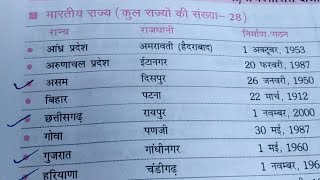 भारतीय राज्य (कुल राज्यों की संख्या– 28)
राज्य राजधानी निर्माण/गठन
आंध्र प्रदेश अमरावती (हैदराबाद) 1 अक्टूबर, 1953
अरुणाचल प्रदेश इंटानगर 20 फरवरी, 1987
असम दिसपुर 26 जनवरी, 1950
बिहार पटना 22 मार्च, 1912
छत्तीसगढ़ रायपुर 1 नवम्बर, 2000
गोवा पणजी 30 मई, 1987
गुजरात गांधीनगर 1 मई, 1960
हरियाणा चंडीगढ़ 1 नवम्बर,